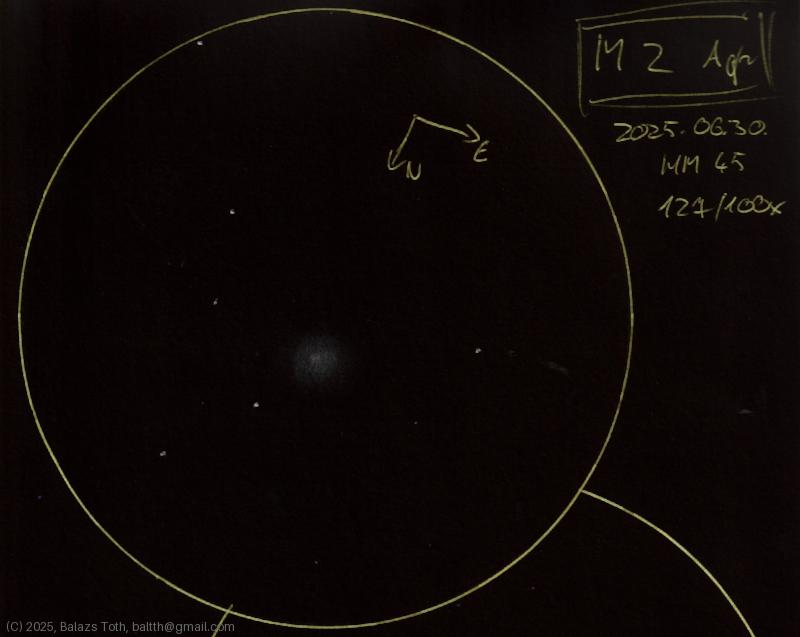 M2 Aqr
2025.06.30.
MM 45
127/100x
N
E
(C) 2025, Balazs Toth, baltth@gmail.com